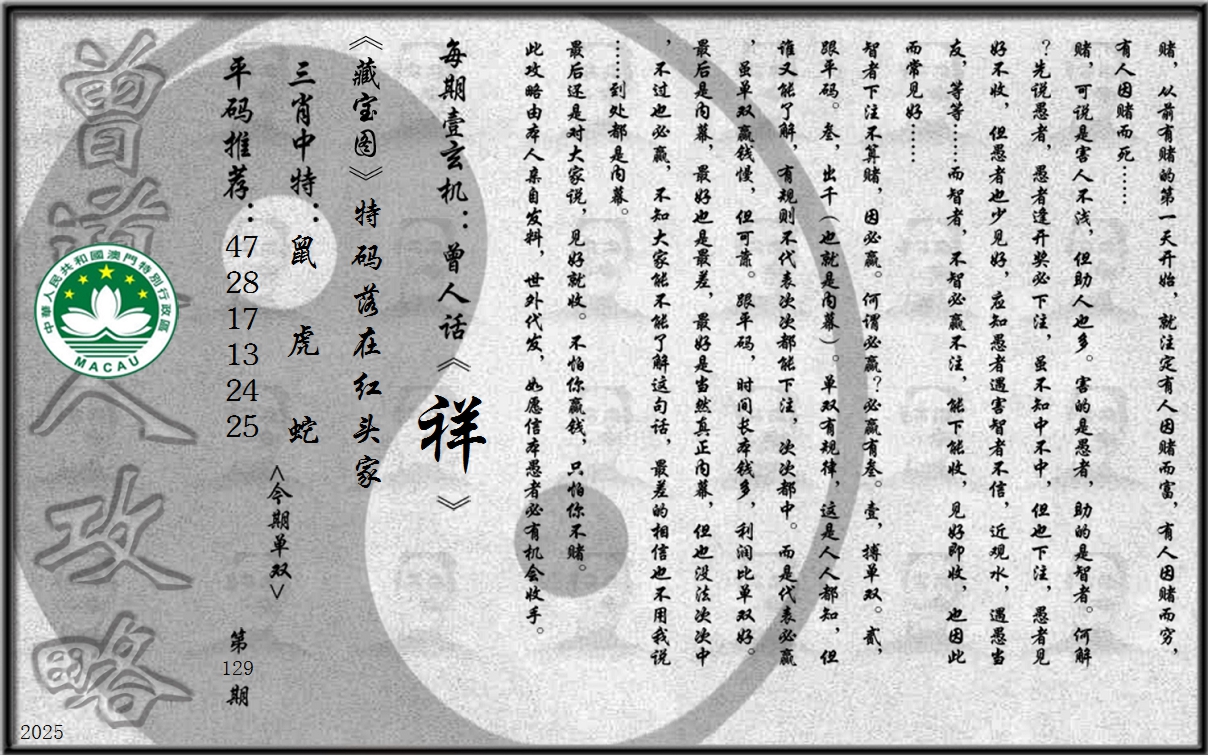 赌，从前有赌的第一天开始，就注定有人因赌而富，有人因赌而穷，
有人因赌而死……
赌，可说是害人不浅，但助人也多。害的是愚者，助的是智者。何解
？先说愚者，愚者逢开奖必下注，虽不知中不中，但也下注，愚者见
好不收，但愚者也少见好，应知愚者遇害智者不信，近观水，遇愚当
友，等等……而智者，不智必赢不注，能下能收，见好即收，也因此
而常见好……
智者下注不算赌，因必赢。何谓必赢？必赢有叁。壹，搏单双。贰，
跟平码。叁，出千（也就是内幕）。单双有规律，这是人人都知，但
谁又能了解，有规则不代表次次都能下注，次次都中。而是代表必赢
，虽单双赢钱慢，但可靠。跟平码，时间长本钱多，利润比单双好。
最后是内幕，最好也是最差，最好是当然真正内幕，但也没法次次中
，不过也必赢，不知大家能不能了解这句话，最差的相信也不用我说
……到处都是内幕。
最后还是对大家说，见好就收。不怕你赢钱，只怕你不赌。
此攻略由本人亲自发料，世外代发，如愿信本愚者必有机会收手。
每期壹玄机：曾人话《祥》
《藏宝图》特码落在红头家
三肖中特：鼠 虎 蛇
<今期单双>
平码推荐：47 28 17 13 24 25
第129期
曾道人攻略
中華人民共和國澳門特別行政區
MACAU
2025